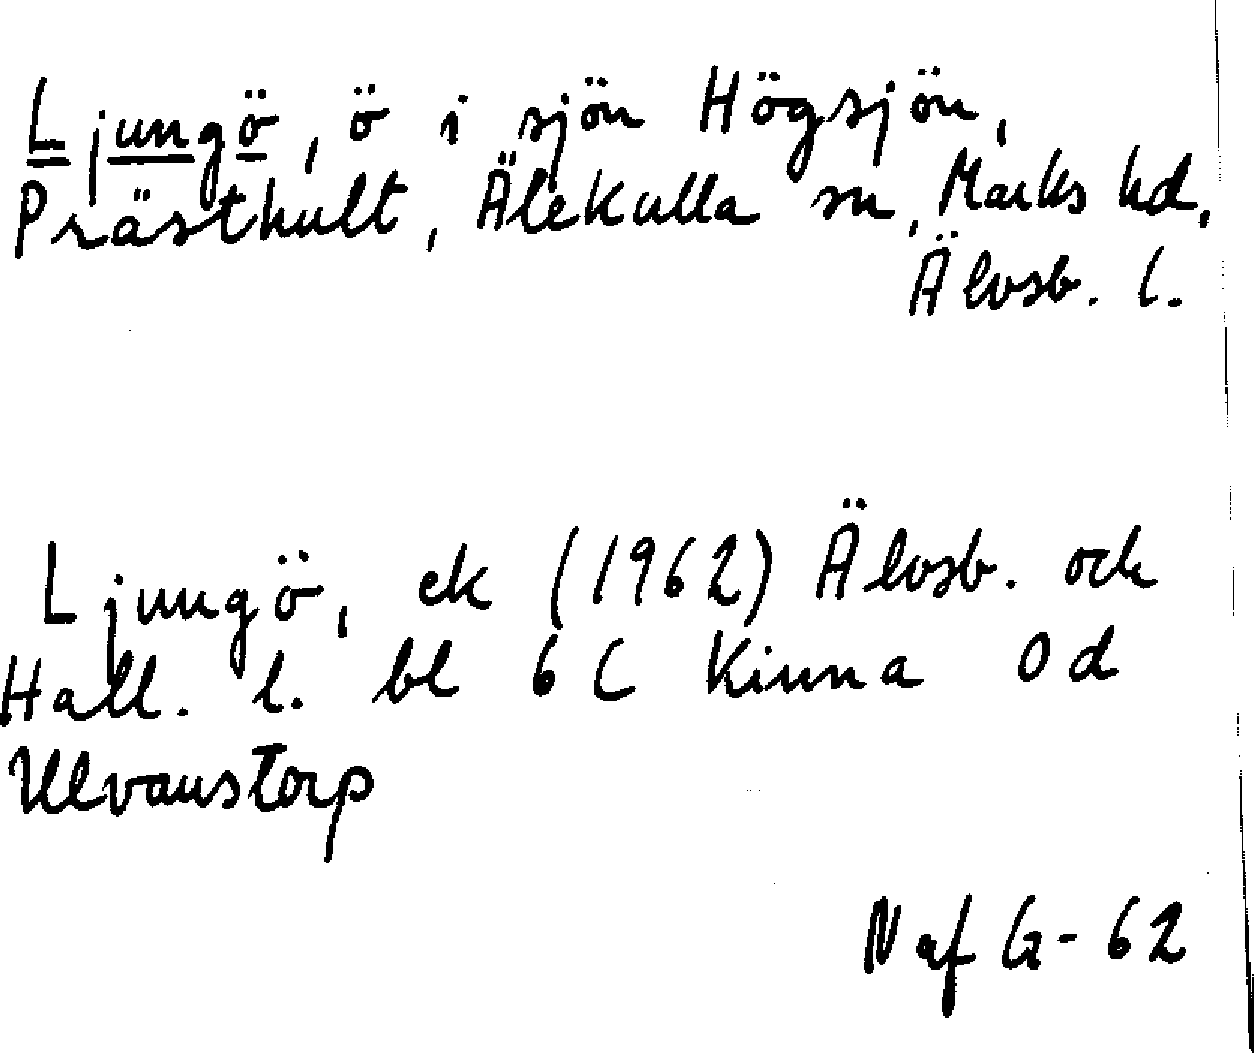 Ljungö, ö i sjön Högsjön,
Prästhult, Älekulla sn, Marks hd,
Älvsb. l.
Ljungö, ek (1962) Älvsb. och
Hall. l. bl 6 C Kinna 0 d
Ulvanstorp
N af G - 62